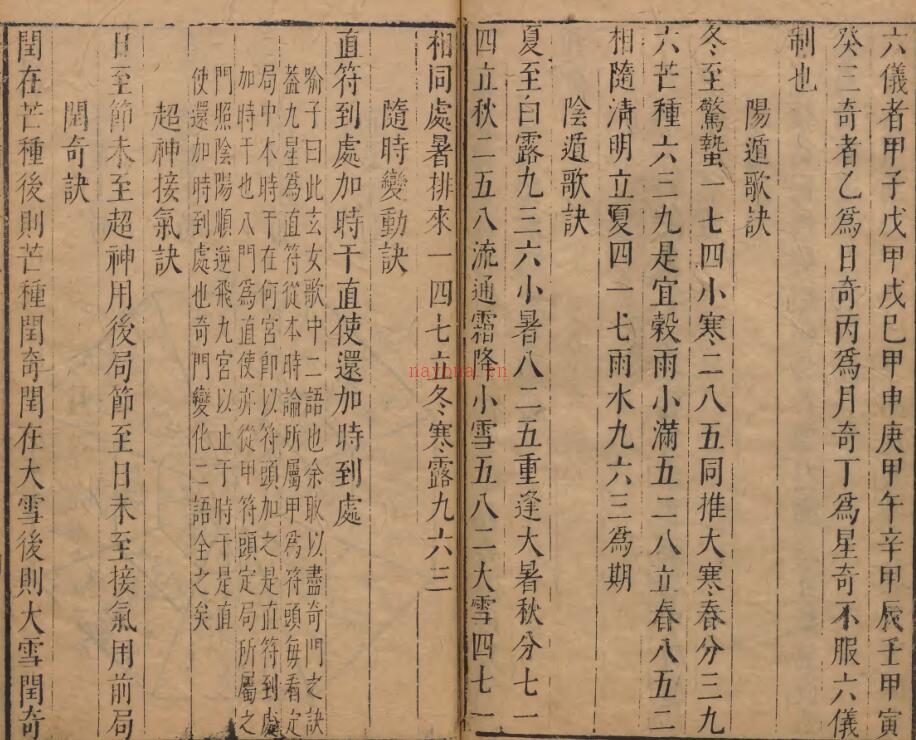 六儀者甲子戊甲戌巳甲申庚甲午辛甲辰壬甲寅
癸三奇者乙爲日奇丙爲月奇丁爲星奇不服六儀
制也
陽遁歌訣
冬至驚蟄一七四小寒二八五同推大寒春分三九
六芒種六三九是宜穀雨小滿五二八立春八五二
相隨淸明立夏四一七雨水九六三爲期
陰遁歌訣
夏至白露九三六小暑八二五重逢大暑秋分七一
四立秋二五八流通霜降小雪五八二大雪四七一
相同處暑排來一四七立冬寒露九六三
隨時變動訣
直符到處加時干直使還加時到處
喻子曰此玄女歌中二語也余取以盡奇門之訣
蓋九星爲直符從本時論所屬甲爲符頭每看定
局中本時干在何宮卽以符頭加之是直符到處
加時干也八門爲直使亦從甲符頭定局所屬之
門照陰陽順逆飛九宮以止于時干是直
使還加時到處也奇門變化二語全之矣
超神接氣訣
日至節未至超神用後局節至日未至接氣用前局
閏奇訣
閏在芒種後則芒種閏奇閏在大雪後則大雪閏奇
nayhua.in